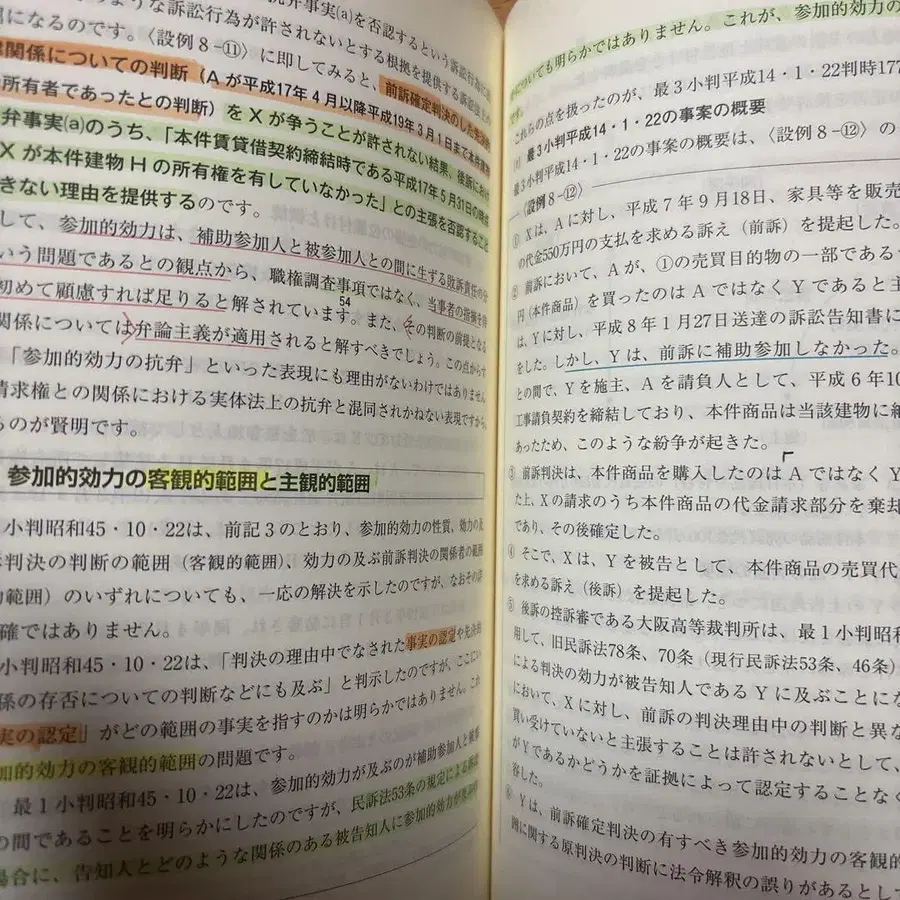 ような訴訟行為が許されないとする根拠を提供する
になるのです。〈設例8-⑪〉に即してみると、前訴確定判決のした
関係についての判断（Aが平成17年4月以降平成19年3月1日まで本件
の所有者であったとの判断）をXが争うことが許されない結果、後訴に
弁事実(a)のうち、「本件賃貸借契約締結時である平成17年5月31日の時点
Xが本件建物Hの所有権を有していなかった」との主張を否認すること
きない理由を提供するのです。
して、参加的効力は、補助参加人と被参加人との間に生ずる敗訴責任の分
いう問題であるとの観点から、職権調査事項ではなく、当事者の指摘を待
初めて顧慮すれば足りると解されています。54また、その判断の前提となる
関係については弁論主義が適用されると解すべきでしょう。この点からす
「参加的効力の抗弁」といった表現にも理由がないわけではありません
請求権との関係における実体法上の抗弁と混同されかねない表現ですから、
るのが賢明です。
参加的効力の客観的範囲と主観的範囲
小判昭和45・10・22は、前記3のとおり、参加的効力の性質、効力の及
判決の判断の範囲（客観的範囲）、効力の及ぶ前訴判決の関係者の範囲
的範囲）のいずれについても、一応の解決を示したのですが、なおその詳
確ではありません。
小判昭和45・10・22は、「判決の理由中でなされた事実の認定や先決的
係の存否についての判断などにも及ぶ」と判示したのですが、ここにい
実の認定」がどの範囲の事実を指すのかは明らかではありません。これ
加的効力の客観的範囲の問題です。
最1小判昭和45・10・22は、参加的効力が及ぶのが補助参加人と被参
の間であることを明らかにしたのですが、民訴法53条の規定による訴訟
場合に、告知人とどのような関係のある被告知人に参加的効力が
についても明らかではありません。これが、参加的効力の
です。
これらの点を扱ったのが、最3小判平成14・1・22判時177
最3小判平成14・1・22の事案の概要
最3小判平成14・1・22の事案の概要は、〈設例8-⑫〉の
〈設例8-⑫〉
① Xは、Aに対し、平成7年9月18日、家具等を販売
の代金550万円の支払を求める訴え（前訴）を提起した。
② 前訴において、Aが、①の売買目的物の一部である
円（本件商品）を買ったのはAではなくYであると主
は、Yに対し、平成8年1月27日送達の訴訟告知書に
をした。しかし、Yは、前訴に補助参加しなかった。
との間で、Yを施主、Aを請負人として、平成6年10
工事請負契約を締結しており、本件商品は当該建物に
あったため、このような紛争が起きた。
③ 前訴判決は、本件商品を購入したのはAではなくY
た上、Xの請求のうち本件商品の代金請求部分を棄却
であり、その後確定した。
④ そこで、Xは、Yを被告として、本件商品の売買代
を求める訴え（後訴）を提起した。
⑤ 後訴の控訴審である大阪高等裁判所は、最1小判昭和
用して、旧民訴法78条、70条（現行民訴法53条、46条）
による判決の効力が被告知人であるYに及ぶことにな
において、Xに対し、前訴の判決理由中の判断と異な
買い受けていないと主張することは許されないとして、
がYであるかどうかを証拠によって認定することなく
容した。
⑥ Yは、前訴確定判決の有すべき参加的効力の客観的
囲に関する原判決の判断に法令解釈の誤りがあるとして